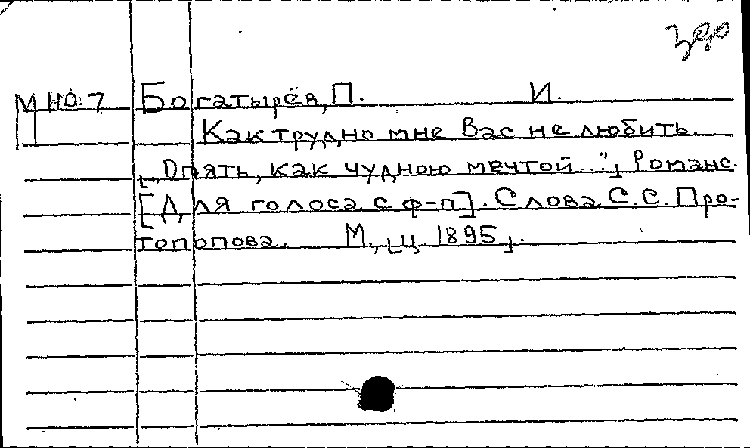 М 110.7 Богатырёв, П. И.
Как трудно мне Вас не любить.
[„Опять, как чудною мечтой..."] Романс.
[Для голоса с ф-п]. Слова С.С. Про-
топопова. М., [ц. 1895].